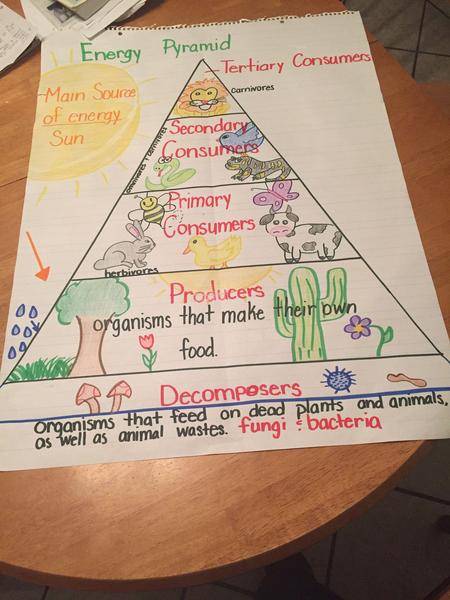 Energy Pyramid
Tertiary Consumers
Carnivores
Main Source
of energy
Sun
Secondary
Consumers
Primary
Consumers
herbivores
Producers
organisms that make their own
food.
Decomposers
organisms that feed on dead plants and animals,
as well as animal wastes. fungi & bacteria